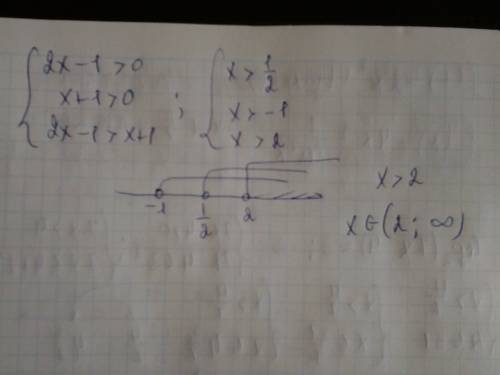 { 2x-1>0 ; { x>1/2
x+1>0 x>-1
2x-1>x+1 x>2
-1 1/2 2
x>2
x∈(2; ∞)